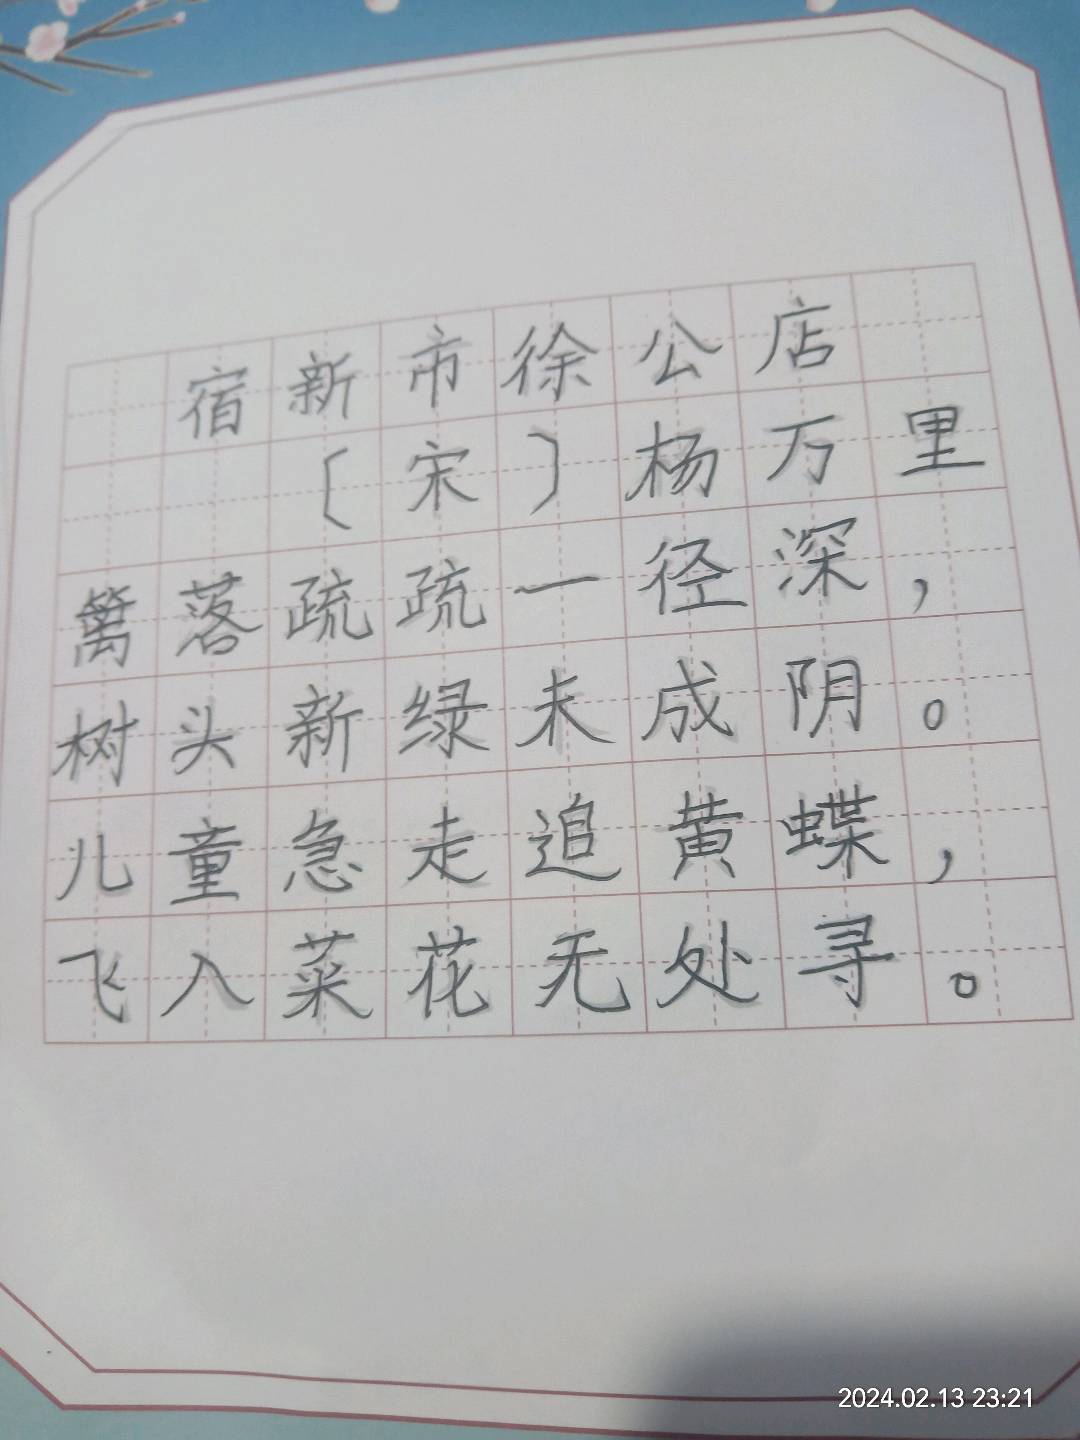 宿新市徐公店
〔宋〕杨万里
篱落疏疏一径深，
树头新绿未成阴。
儿童急走追黄蝶，
飞入菜花无处寻。
2024.02.13 23:21